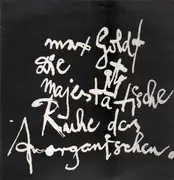 max Goldt
Die
majestätische
Ruhe des
Anorganischen.